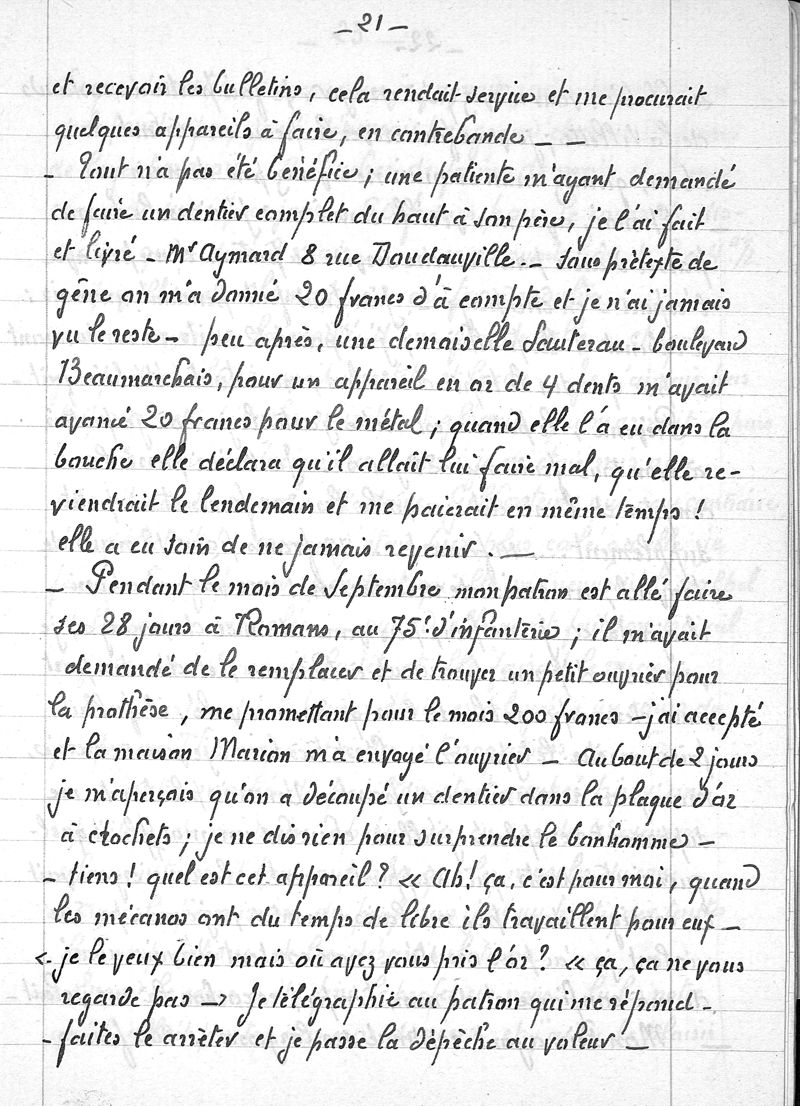 — 21 —
et recevoir les bulletins, cela rendait service et me procurait
quelques appareils à faire, en contrebande — —
— Tout n'a pas été bénéfice ; une patiente m'ayant demandé
de faire un dentier complet du haut à son père, je l'ai fait
et livré — Mr Aymard 8 rue Doudauville. — Sous prètexte de
gêne on m'a donné 20 francs d'à compte et je n'ai jamais
vu le reste — peu après, une demoiselle Sautereau — boulevard
Beaumarchais, pour un appareil en or de 4 dents m'avait
avancé 20 francs pour le métal ; quand elle l'a eu dans la
bouche elle déclara qu'il allait lui faire mal, qu'elle re-
viendrait le lendemain et me paierait en même temps !
elle a eu soin de ne jamais revenir. —
— Pendant le mois de Septembre mon patron est allé faire
ses 28 jours à Romans, au 75e d'infanterie ; il m'avait
demandé de le remplacer et de trouver un petit ouvrier pour
la prothèse, me promettant pour le mois 200 francs — j'ai accepté
et la maison Marion m'a envoyé l'ouvrier — Au bout de 2 jours
je m'aperçois qu'on a découpé un dentier dans la plaque d'or
à crochets ; je ne dis rien pour surprendre le bonhomme —
— tiens ! quel est cet appareil ? « Ah ! ça, c'est pour moi, quand
les mécanos ont du temps de libre ils travaillent pour eux —
« je le veux bien mais où avez vous pris l'or ? « ça, ça ne vous
regarde pas — Je télégraphie au patron qui me répond —
— faites le arrèter et je passe la dépêche au voleur —